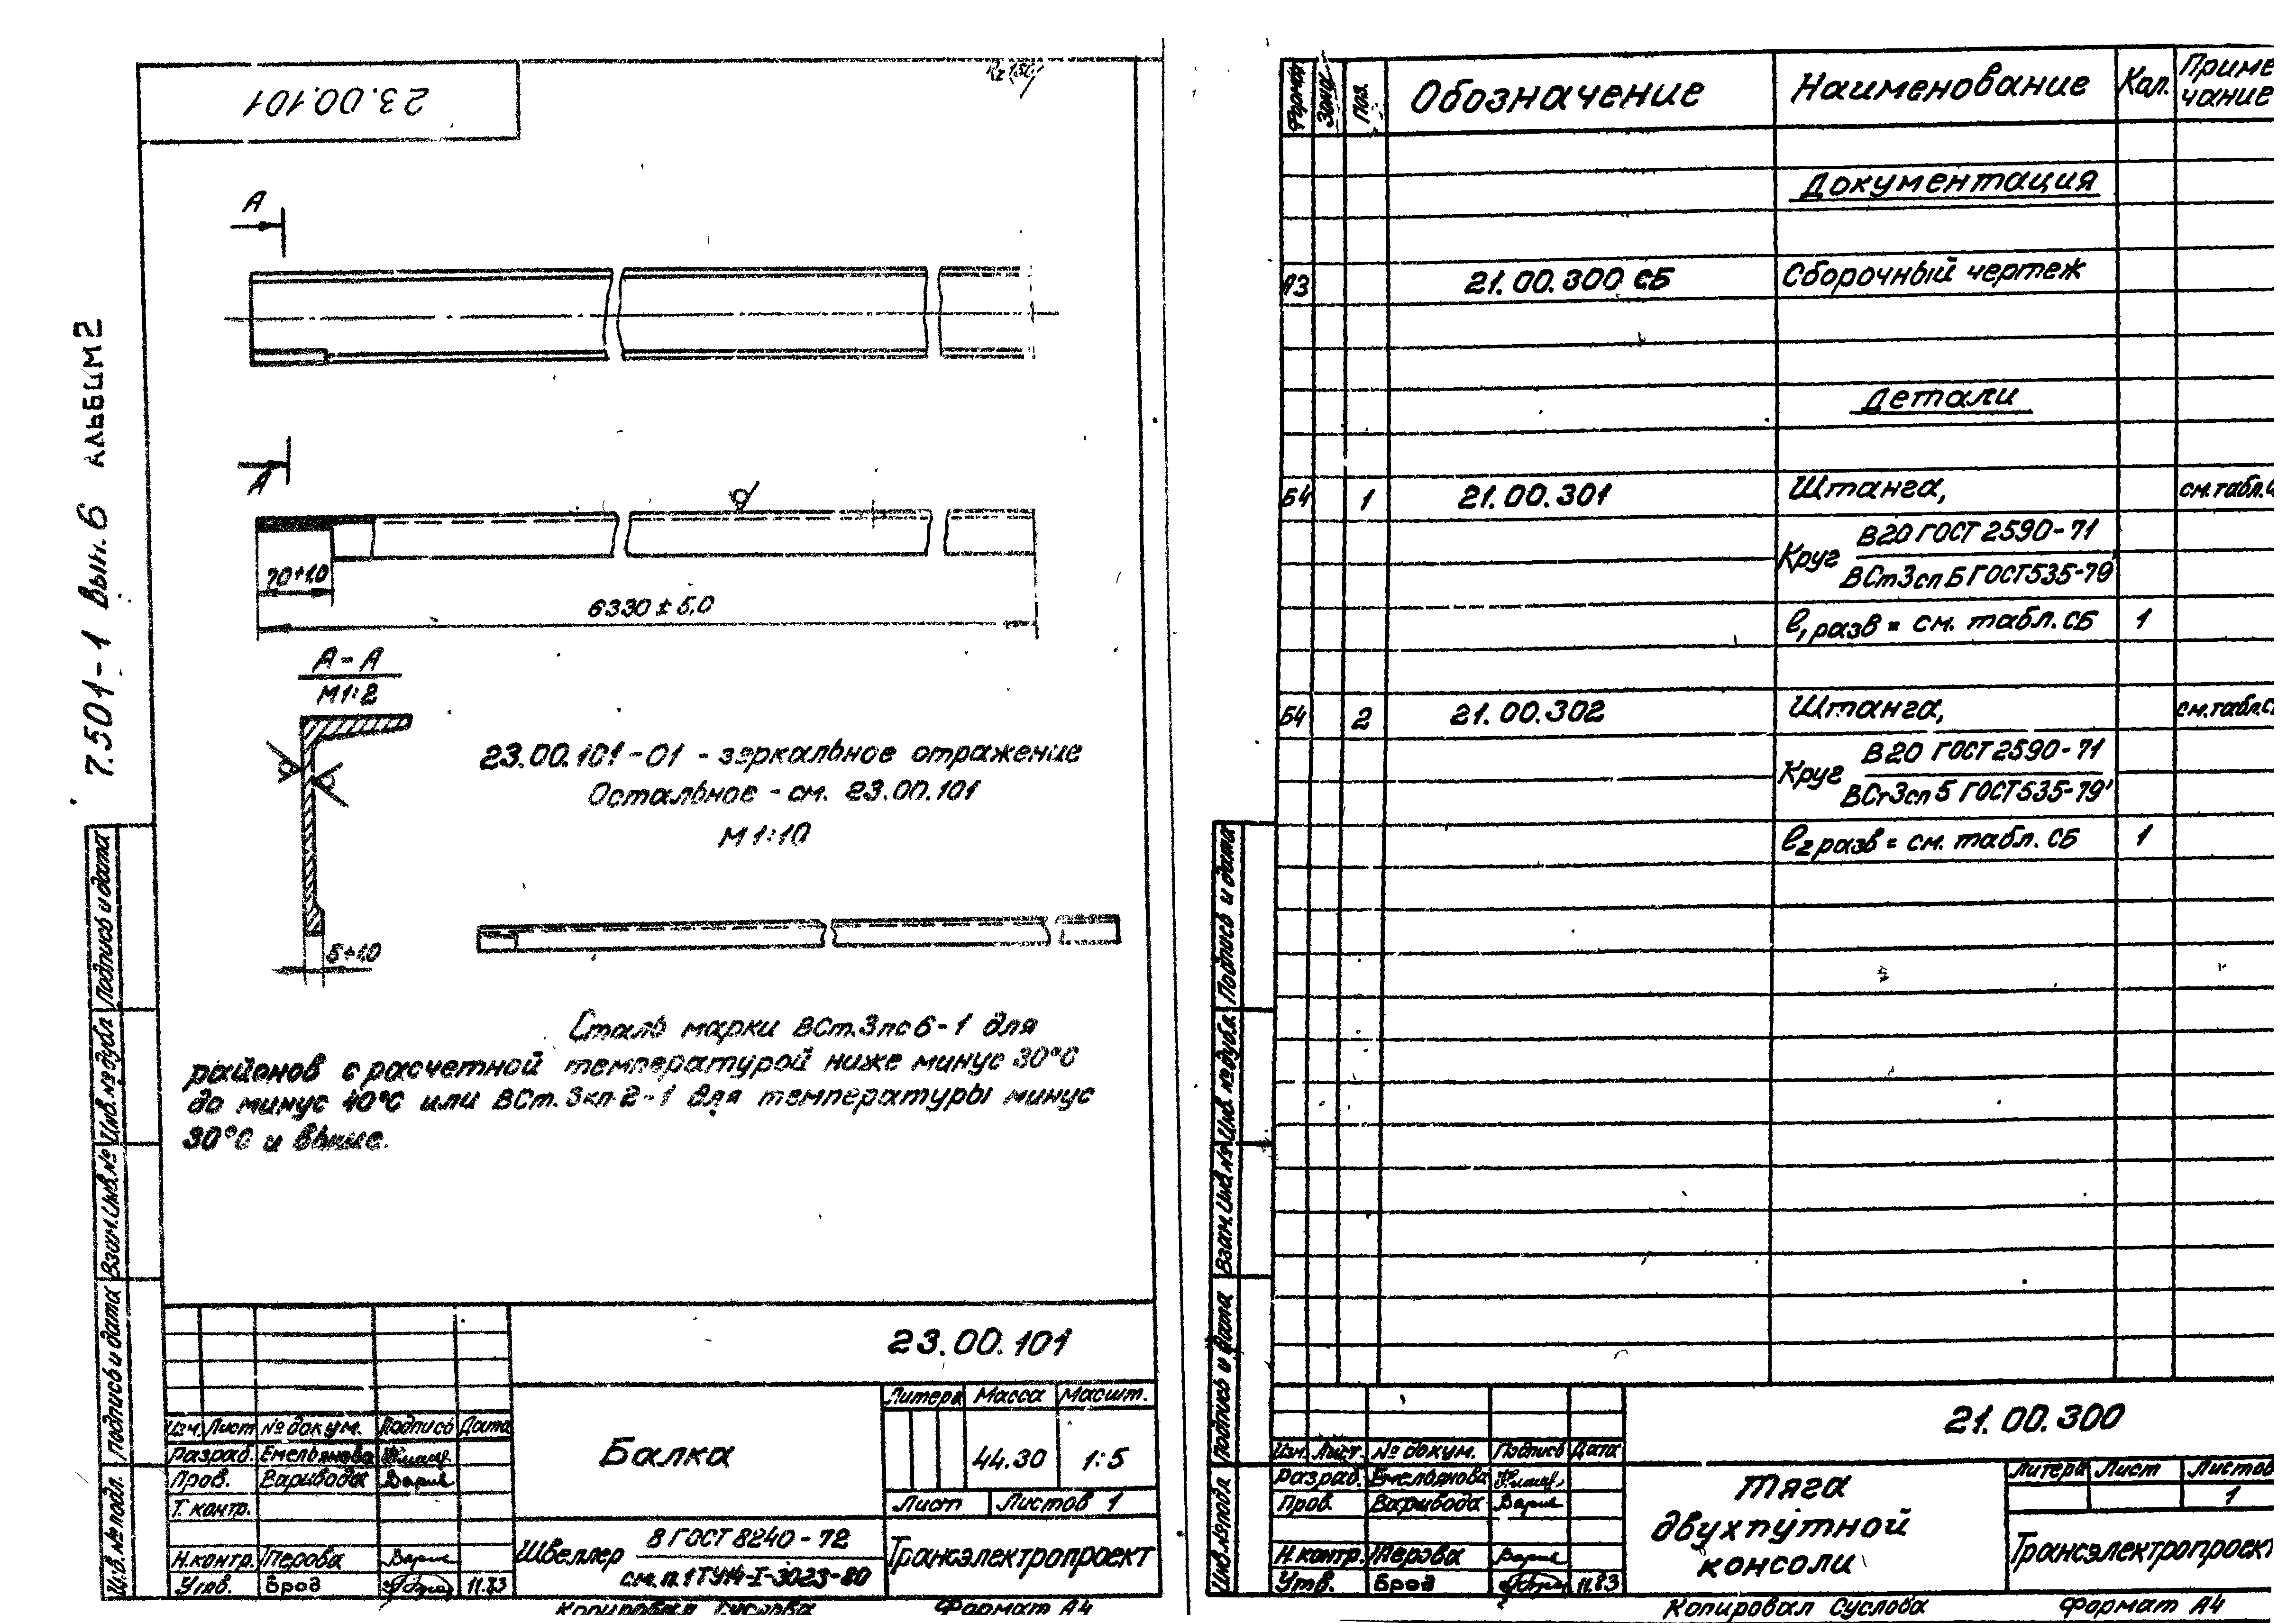 7.501-1 Вып.6 АЛЬБОМ 2
23.00.101
Rz 150
А
А
70±1,0
6330 ± 5,0
А-А
М1:2
5±1,0
23.00.101-01 - зеркальное отражение
Остальное - см. 23.00.101
М 1:10
Сталь марки ВСт.3пс6-1 для
районов с расчетной температурой ниже минус 30°С
до минус 40°С или ВСт.3кп2-1 для температуры минус
30°С и выше.
Подпись и дата
Инв.№ дубл
Взам.инв.№
Подпись и дата
Инв.№ подл.
23.00.101
Изм. Лист № докум. Подпись Дата
Разраб. Емельянова
Пров. Варивода
Т. контр.
Н.контр. Перова
Утв. Брод 11.83
Балка
Литера Масса Масшт.
44.30 1:5
Лист Листов 1
Швеллер 8 ГОСТ 8240-72
см.п.1 ТУ14-I-3023-80
Трансэлектропроект
Копировал Суслова Формат А4
Формат Зона Поз. Обозначение Наименование Кол. Приме
чание
Документация
А3 21.00.300 СБ Сборочный чертеж
Детали
Б4 1 21.00.301 Штанга, см.табл.
Круг В20 ГОСТ 2590-71
ВСт3сп5 ГОСТ535-79
ℓ1разв = см. табл. СБ 1
Б4 2 21.00.302 Штанга, см.табл.
Круг В20 ГОСТ 2590-71
ВСт3сп5 ГОСТ535-79
ℓ2разв = см. табл. СБ 1
Подпись и дата
Инв. № дубл.
Взам.инв.№
Подпись и дата
Инв.№ подл
21.00.300
Изм. Лист. № докум. Подпись Дата
Разраб. Емельянова
Пров. Варивода
Н.контр. Перова
Утв. Брод 11.83
Тяга
двухпутной
консоли
Литера Лист Листов
1
Трансэлектропроект
Копировал Суслова Формат А4